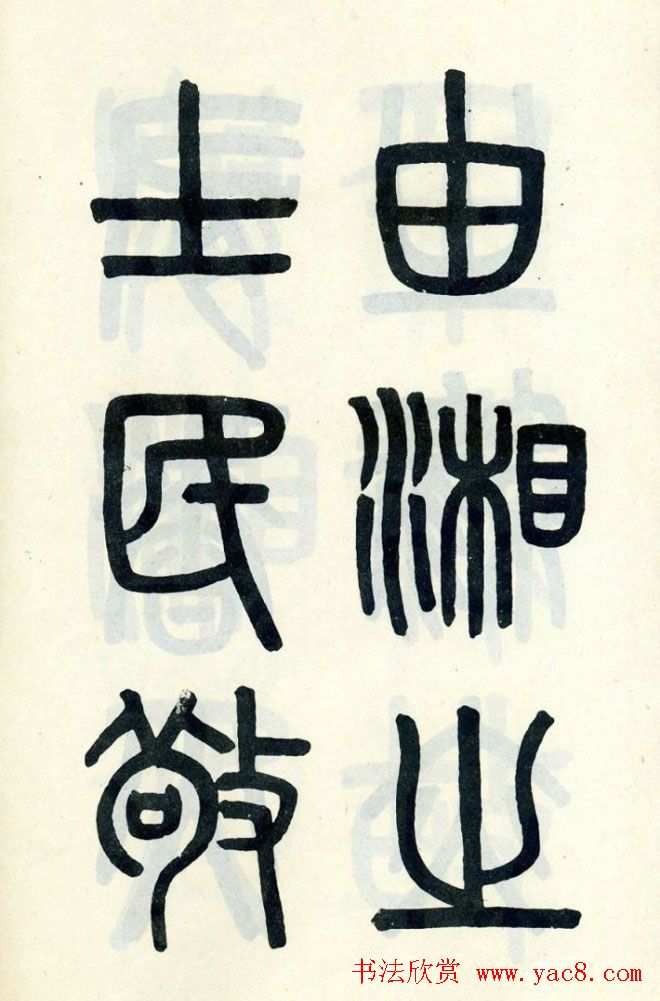 由湘之
士民敬
书法欣赏 www.yac8.com